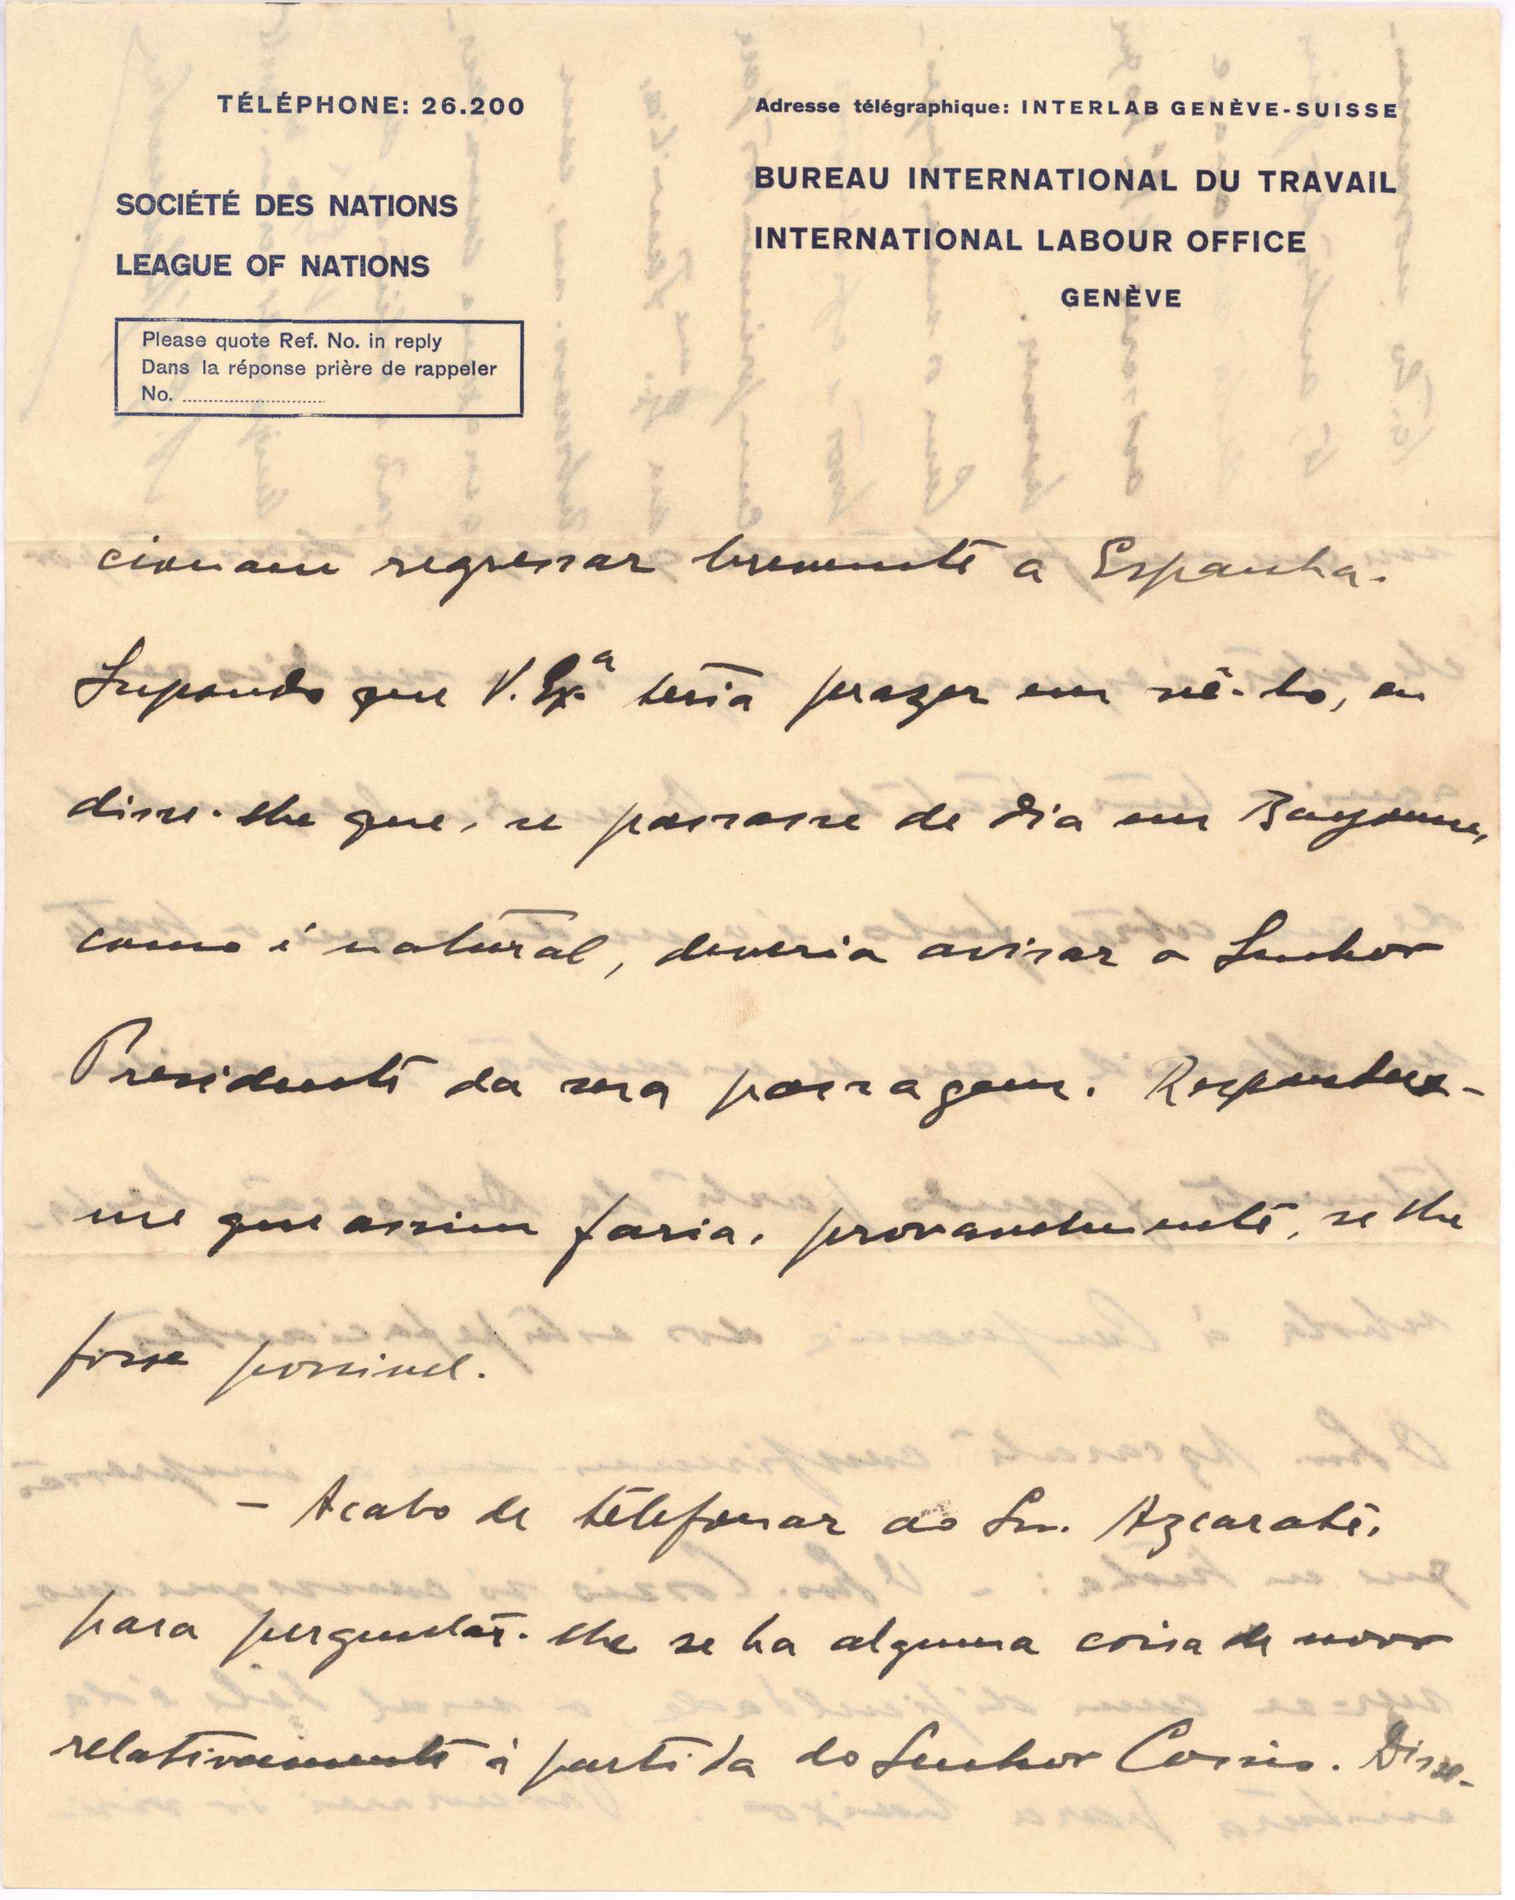 TÉLÉPHONE: 26.200
Adresse télégraphique: INTERLAB GENÈVE-SUISSE
SOCIÉTÉ DES NATIONS
LEAGUE OF NATIONS
BUREAU INTERNATIONAL DU TRAVAIL
INTERNATIONAL LABOUR OFFICE
GENÈVE
Please quote Ref. No. in reply
Dans la réponse prière de rappeler
No.
cionam regressar brevemente a Espanha.
Supondo que V. Exª teria prazer em vê-lo, eu
disse-lhe que, se passasse de dia em Bayonne,
como é natural, deveria avisar o Senhor
Presidente da sua passagem. Respondeu-
me que assim faria, provavelmente, se lhe
fosse possivel.
- Acabo de telefonar ao Snr. Azcarate,
para perguntar-lhe se ha alguma coisa de novo
relativamente á partida do Senhor Cossio. Disse-